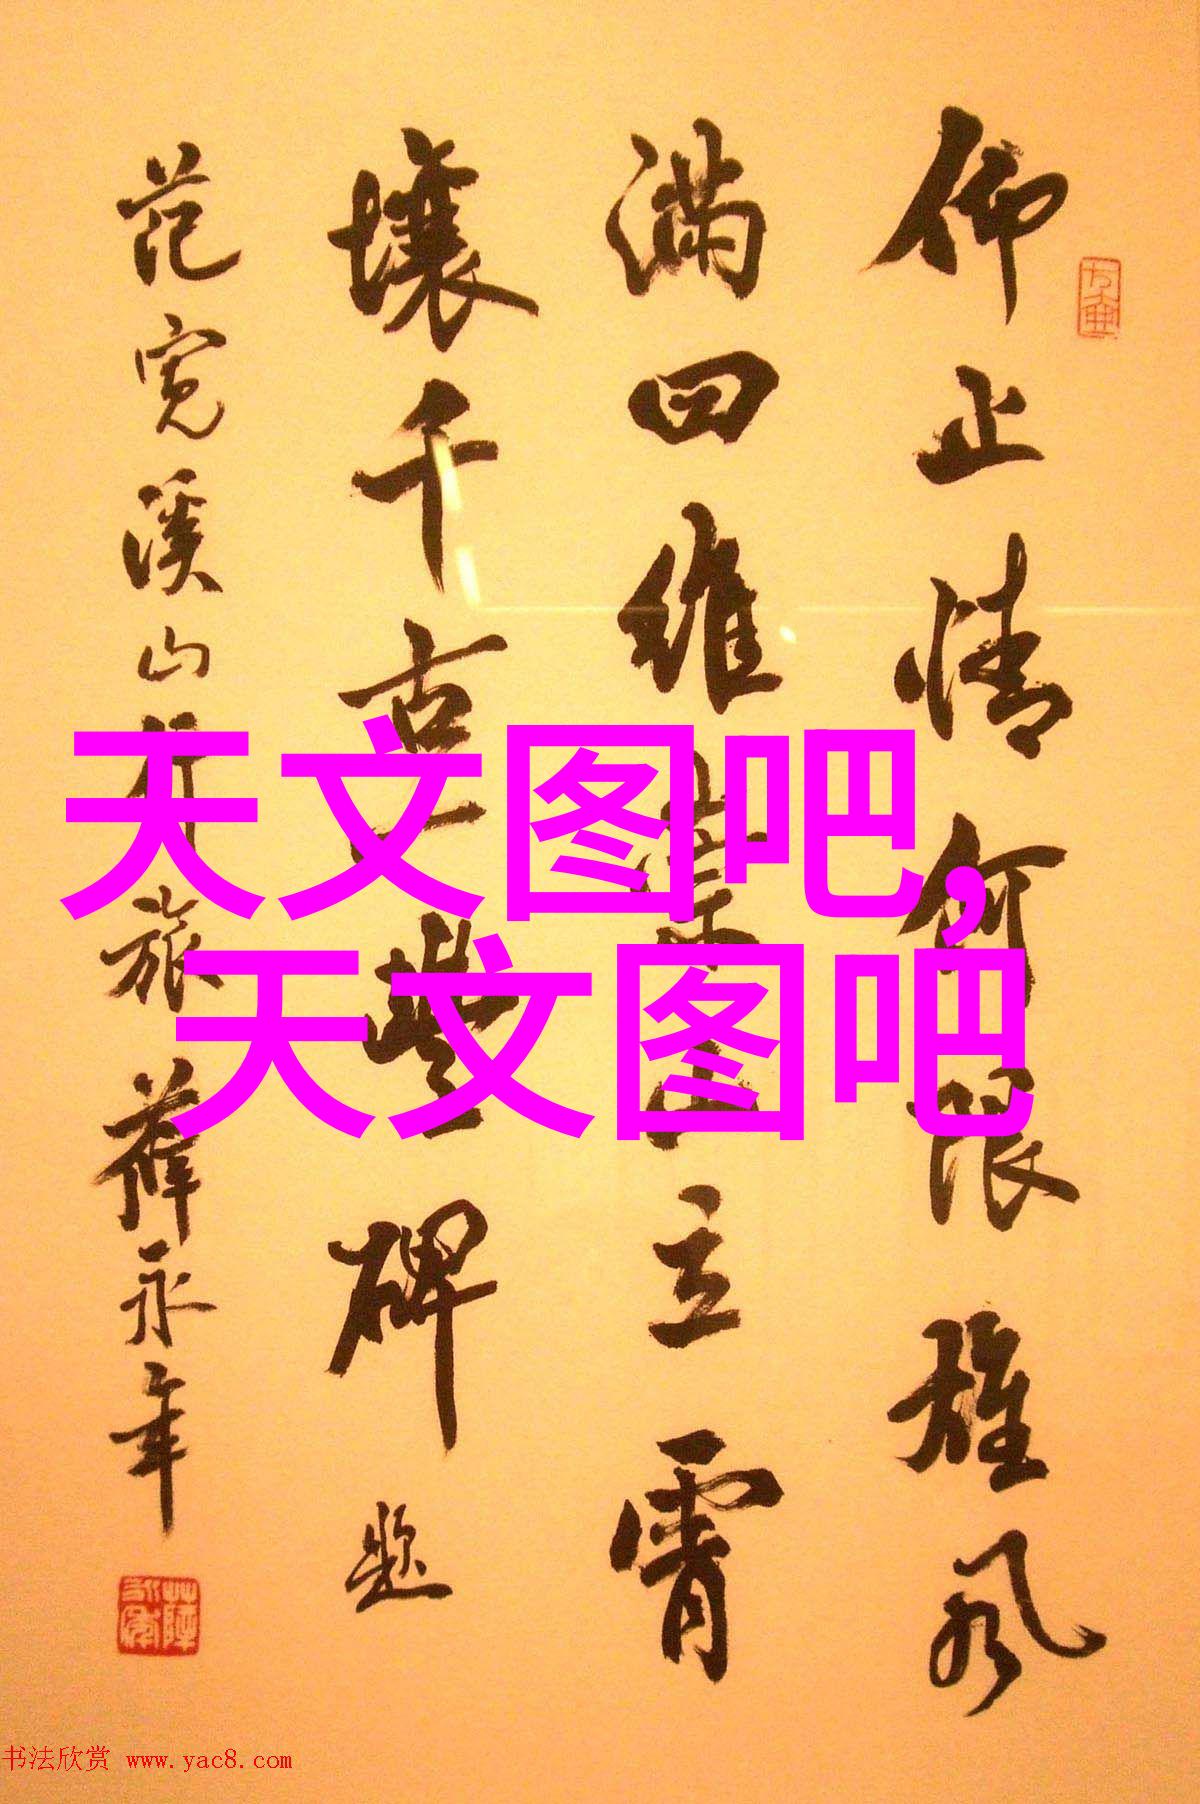 仰止情何限雄风
满四维崇山立霄
壤千古一豐碑 题
范宽溪山行旅 薛永年
天文图吧,
天文图吧
书法欣赏 www.yac8.com